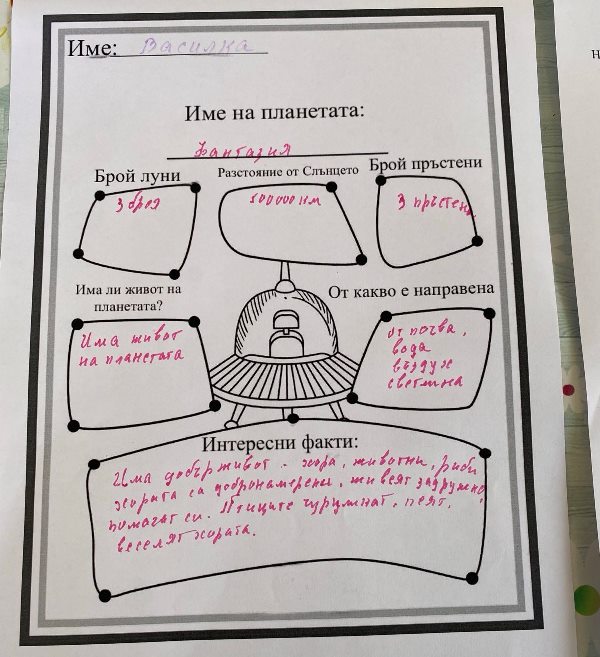 Име: Василка
Име на планетата:
Фантазия
Брой луни
Разстояние от Слънцето
Брой пръстени
3 броя
100000 км
3 пръстена
Има ли живот на
планетата?
От какво е направена
Има живот
на планетата
от почва,
вода
въздух
светлина
Интересни факти:
Има добър живот - хора, животни, риби
хората са добронамерени, живеят задружно,
помагат си. Птиците чуруликат, пеят,
веселят хората.